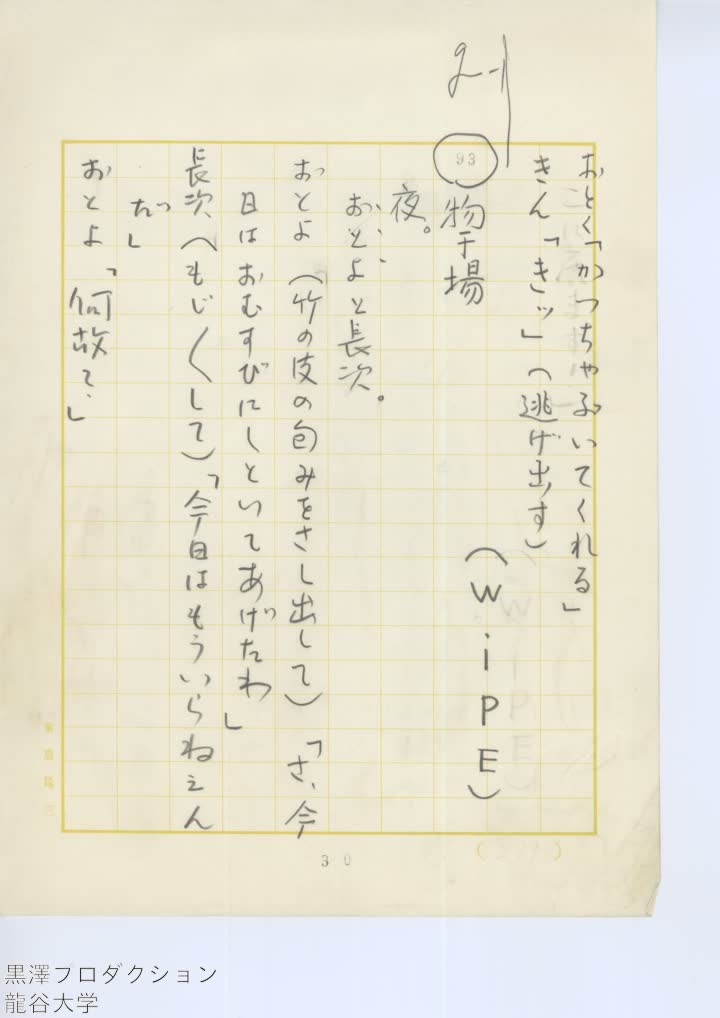 おとく「かつちゃぶいてくれる」
きん「きッ」（逃げ出す）
（WiPE）
93 物干場
夜。
おとよと長次。
おとよ（竹の皮の包みをさし出して）「さ、今
日はおむすびにしといてあげたわ」
長次（もじ〱して）「今日はもういらねえん
だ」
おとよ「何故？」
30
黒澤プロダクション
龍谷大学